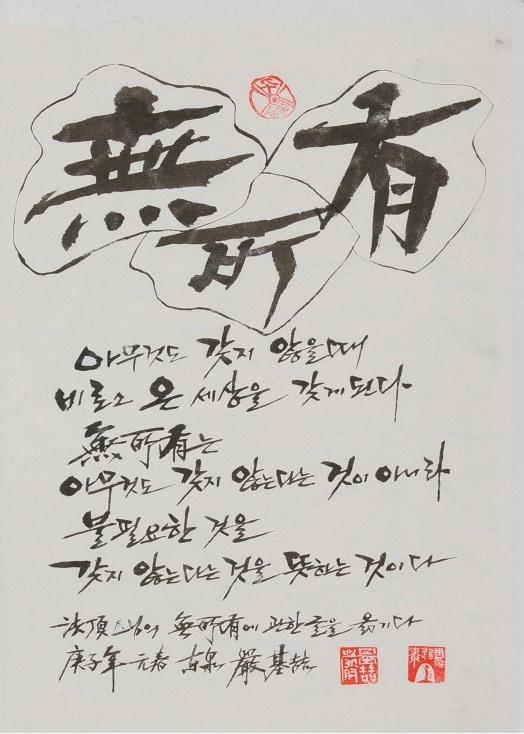 無所有
아무것도 갖지 않을 때
비로소 온 세상을 갖게 된다
無所有는
아무것도 갖지 않는다는 것이 아니라
불필요한 것을
갖지 않는다는 것을 뜻하는 것이다
法頂 스님의 無所有에 관한 글을 옮기다
庚子年 元春 古泉 嚴基喆